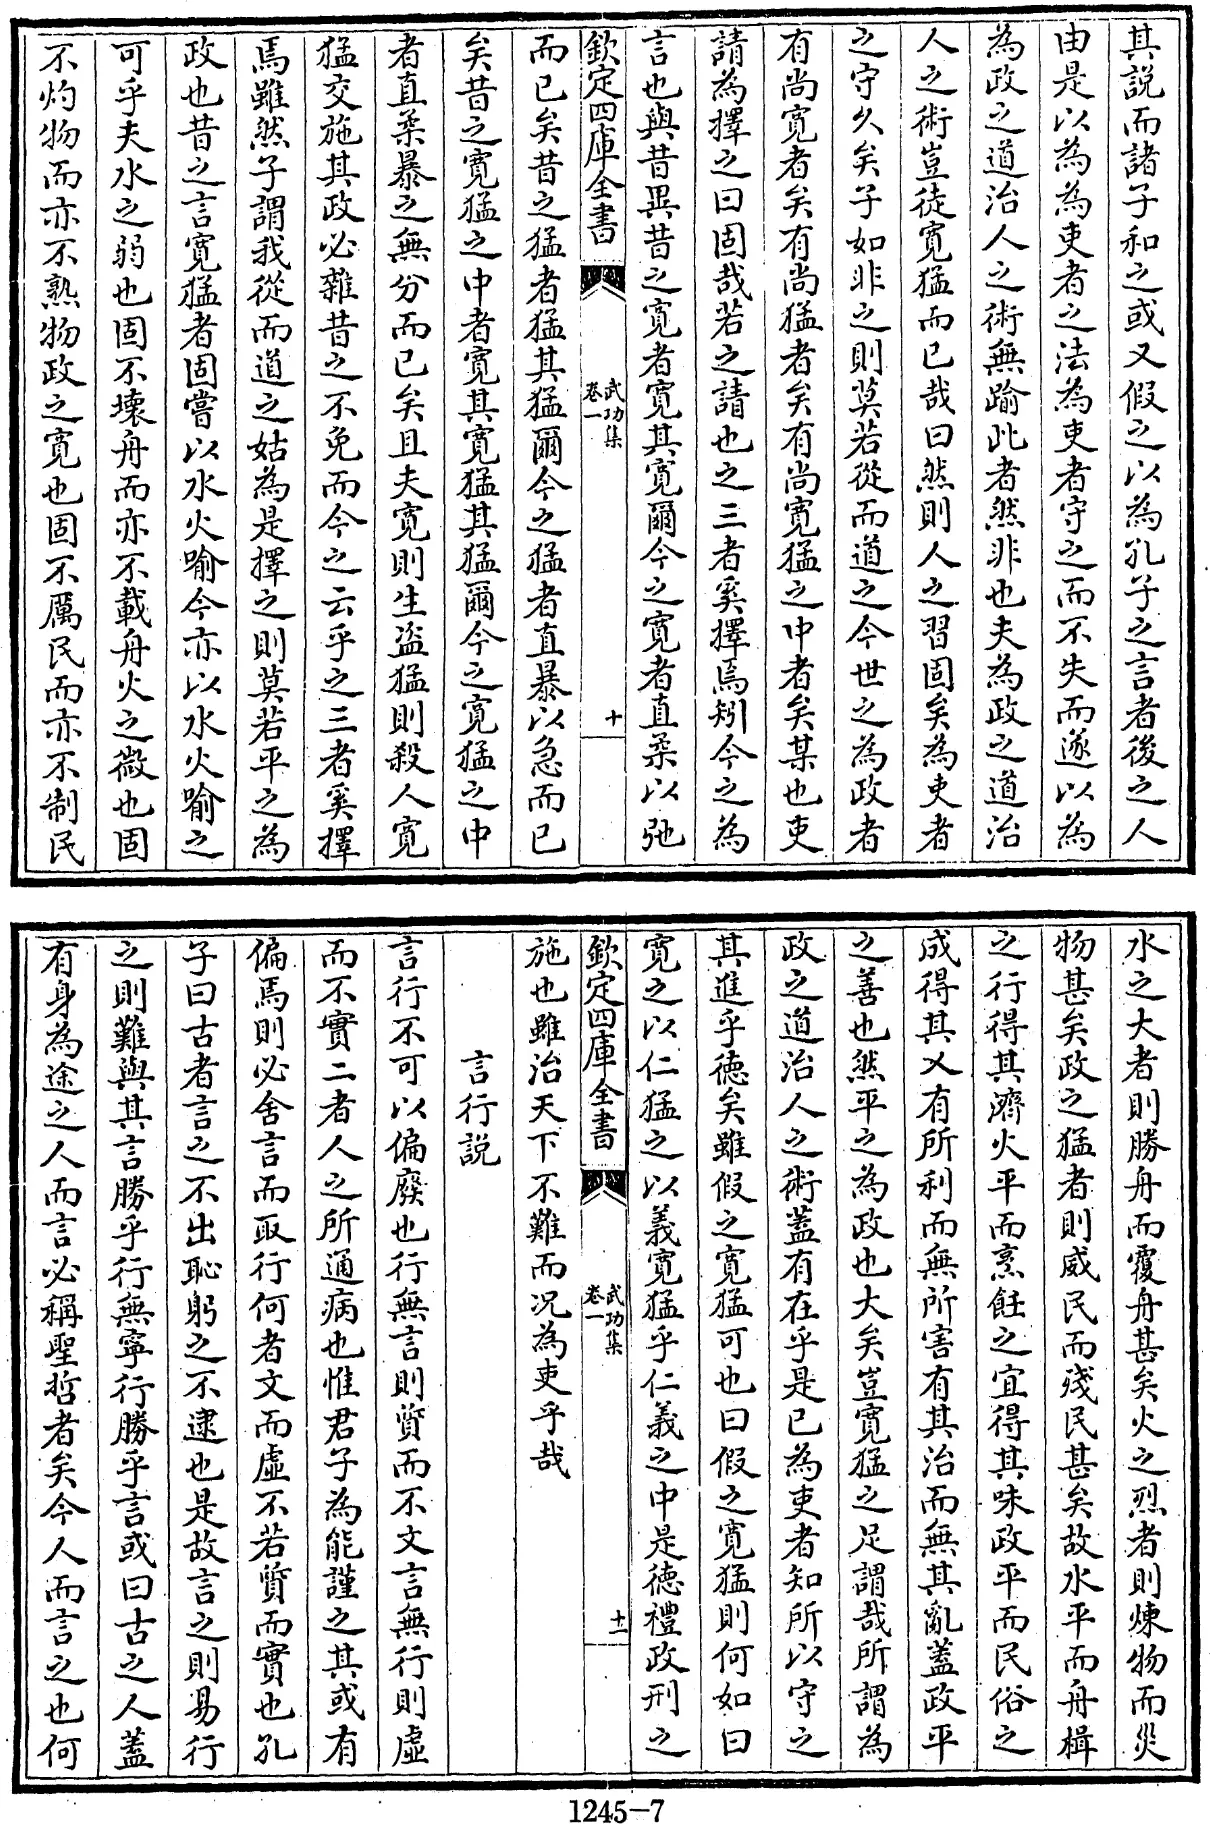 其說而諸子和之或又假之以為孔子之言者後之人
由是以為為吏者之法為吏者守之而不失而遂以為
為政之道治人之術無踰此者然非也夫為政之道治
人之術豈徒寬猛而已哉曰然則人之習固矣為吏者
之守久矣子如非之則莫若從而道之今世之為政者
有尚寬者矣有尚猛者矣有尚寬猛之中者矣某也吏
請為擇之曰固哉若之請也之三者奚擇焉矧今之為
言也與昔異昔之寬者寬其寬爾今之寬者直柔以弛
欽定四庫全書
武功集
卷一
十
而已矣昔之猛者猛其猛爾今之猛者直暴以急而已
矣昔之寬猛之中者寬其寬猛其猛爾今之寬猛之中
者直柔暴之無分而已矣且夫寬則生盜猛則殺人寬
猛交施其政必雜昔之不免而今之云乎之三者奚擇
焉雖然子謂我從而道之姑為是擇之則莫若平之為
政也昔之言寬猛者固嘗以水火喻今亦以水火喻之
可乎夫水之弱也固不壞舟而亦不載舟火之微也固
不灼物而亦不熟物政之寬也固不厲民而亦不制民
水之大者則勝舟而覆舟甚矣火之烈者則煉物而災
物甚矣政之猛者則威民而殘民甚矣故水平而舟楫
之行得其濟火平而烹飪之宜得其味政平而民俗之
成得其乂有所利而無所害有其治而無其亂蓋政平
之善也然平之為政也大矣豈寬猛之足謂哉所謂為
政之道治人之術蓋有在乎是已為吏者知所以守之
其進乎德矣雖假之寬猛可也曰假之寬猛則何如曰
寬之以仁猛之以義寬猛乎仁義之中是德禮政刑之
欽定四庫全書
武功集
卷一
十一
施也雖治天下不難而況為吏乎哉
言行說
言行不可以偏廢也行無言則質而不文言無行則虛
而不實二者人之所通病也惟君子為能謹之其或有
偏焉則必舍言而取行何者文而虛不若質而實也孔
子曰古者言之不出恥躬之不逮也是故言之則易行
之則難與其言勝乎行無寧行勝乎言或曰古之人蓋
有身為途之人而言必稱聖哲者矣今人而言之也何
1245-7